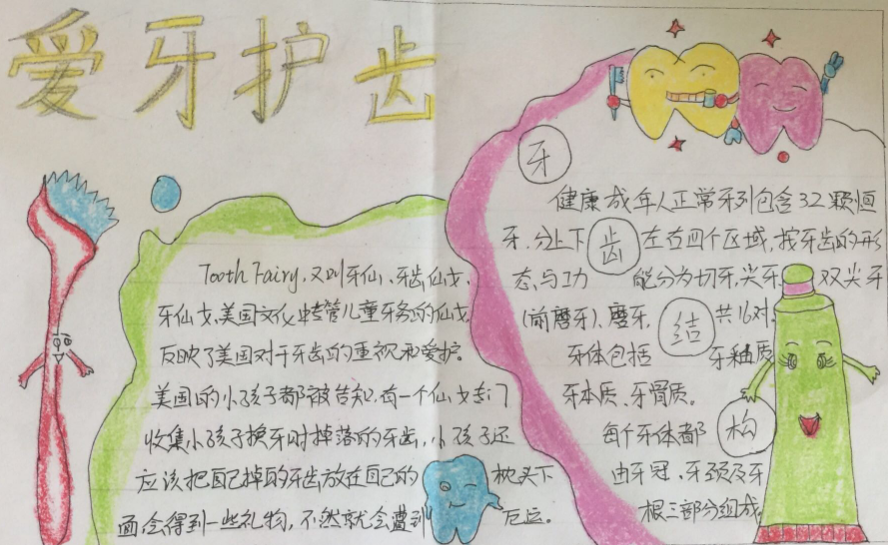 爱牙护齿
Tooth Fairy,又叫牙仙、牙齿仙女、
牙仙女,美国文化中专管儿童牙务的仙女
反映了美国对于牙齿的重视和爱护。
美国的小孩子都被告知,有一个仙女专门
收集小孩子换牙时掉落的牙齿,小孩子还
应该把自己掉的牙齿放在自己的枕头下
面会得到一些礼物,不然就会遭到厄运。
牙
齿
结
构
健康成年人正常牙列包含32颗恒
牙,分上下左右四个区域,按牙齿的形
态,与功能分为切牙,尖牙、双尖牙
(前磨牙)、磨牙,共16对,
牙体包括牙釉质
牙本质、牙骨质。
每个牙体都
由牙冠、牙颈及牙
根三部分组成